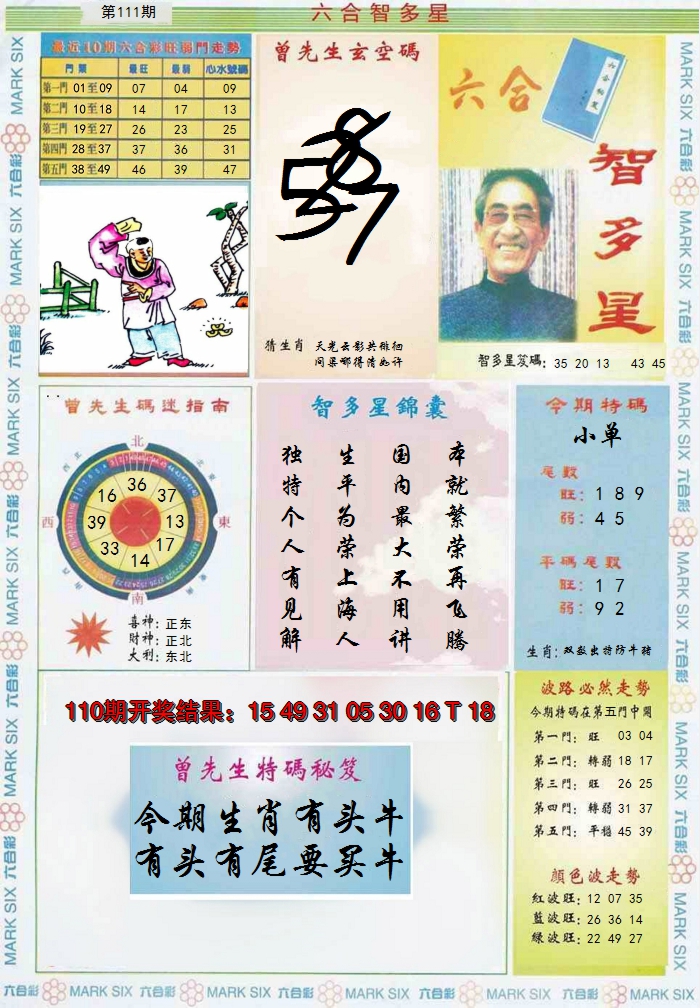 第111期
六合智多星
最近10期六合彩旺弱門走勢
門類 最旺 最弱 心水號碼
第一門 01至09 07 04 09
第二門 10至18 14 17 13
第三門 19至27 26 23 25
第四門 28至37 37 36 31
第五門 38至49 46 39 47
曾先生玄空碼
猜生肖 天光云影共徘徊
问渠哪得清如许
六合
智多星
智多星笈碼: 35 20 13 43 45
曾先生碼迷指南
北
西
東
南
36
16
37
39
13
33
17
14
喜神: 正东
财神: 正北
大利: 东北
智多星錦囊
本就繁荣再飞腾
国内最大不用讲
生平为荣上海人
独特个人有见解
今期特碼
小单
尾數
旺: 1 8 9
弱: 4 5
平碼尾數
旺: 1 7
弱: 9 2
生肖: 双数出特防牛猪
110期开奖结果：15 49 31 05 30 16 T 18
曾先生特碼秘笈
今期生肖有头牛
有头有尾要买牛
波路必然走势
今期特碼在第五門中開
第一門: 旺 03 04
第二門: 轉弱 18 17
第三門: 旺 26 25
第四門: 轉弱 31 37
第五門: 平穩 45 39
顏色波走勢
紅波旺: 12 07 35
藍波旺: 26 36 14
綠波旺: 22 49 27
六合彩 MARK SIX